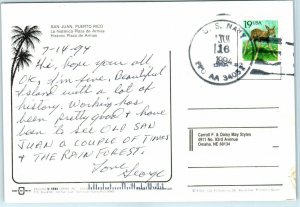 SAN JUAN, PUERTO RICO
La histórica Plaza de Armas
Historic Plaza de Armas
7-14-94
Hi, hope your all
OK, I'm fine, Beautiful
Island with a lot of
history. Working has
been pretty good & have
been to see Old SAN
JUAN A COUPLE OF TIMES
& THE RAIN FOREST.
Love,
George
U.S. NAVY
16
1994
FPO AA 34053
19
USA
Carroll F. & Daisy May Styles
8911 No. 83rd Avenue
Omaha, NE 68134